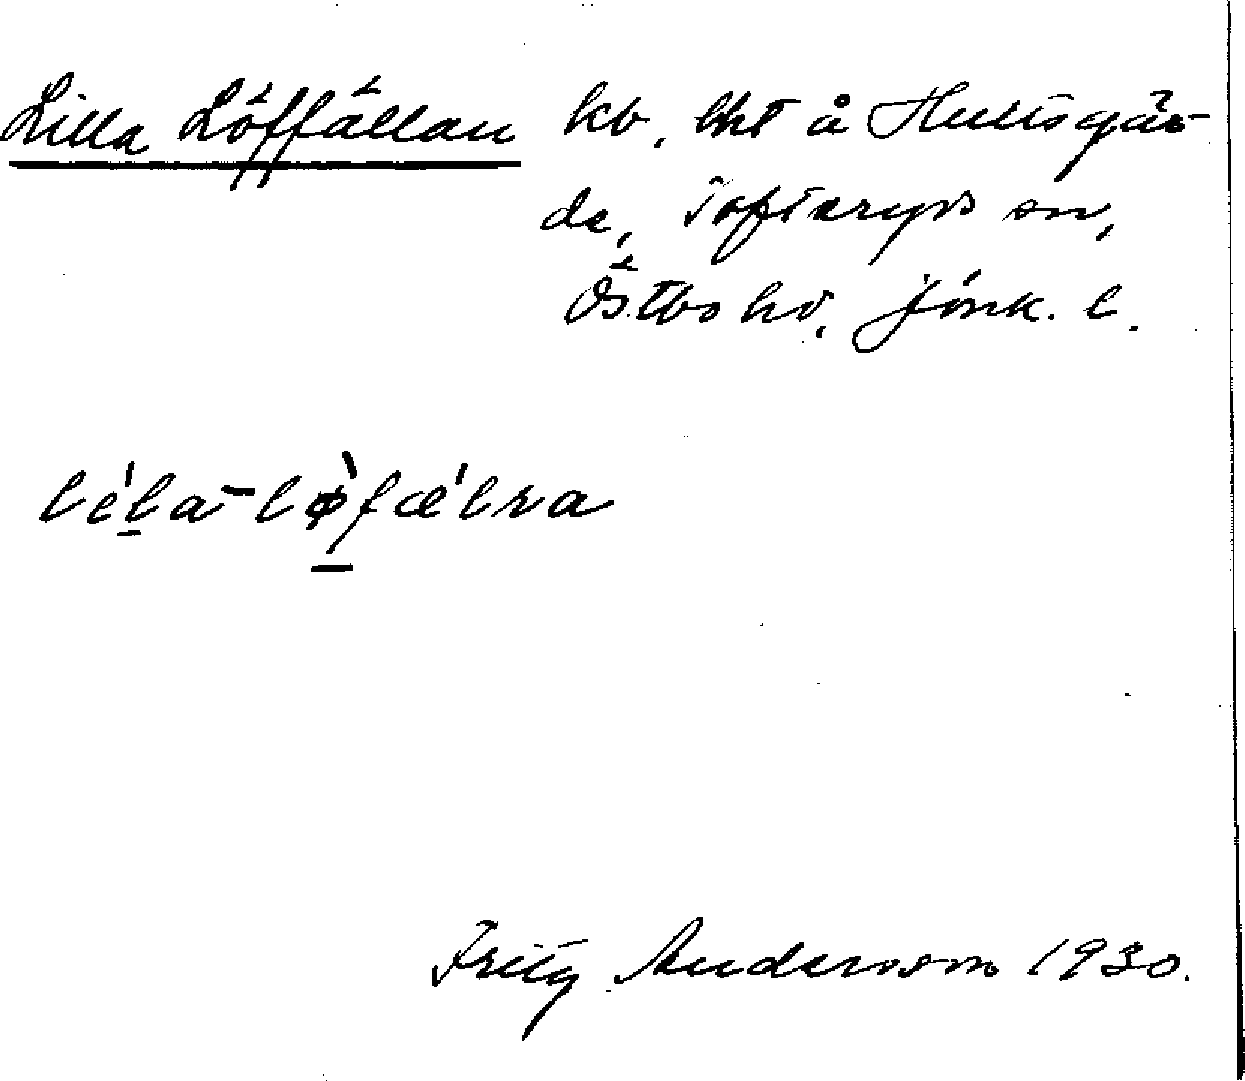 Lilla Löffällan kb, lht å Hultsgär-
de, Tofteryds sn,
Östbo hd, Jönk. l.
léla-lø̀fæ´lna
Fritz Anderson 1930.